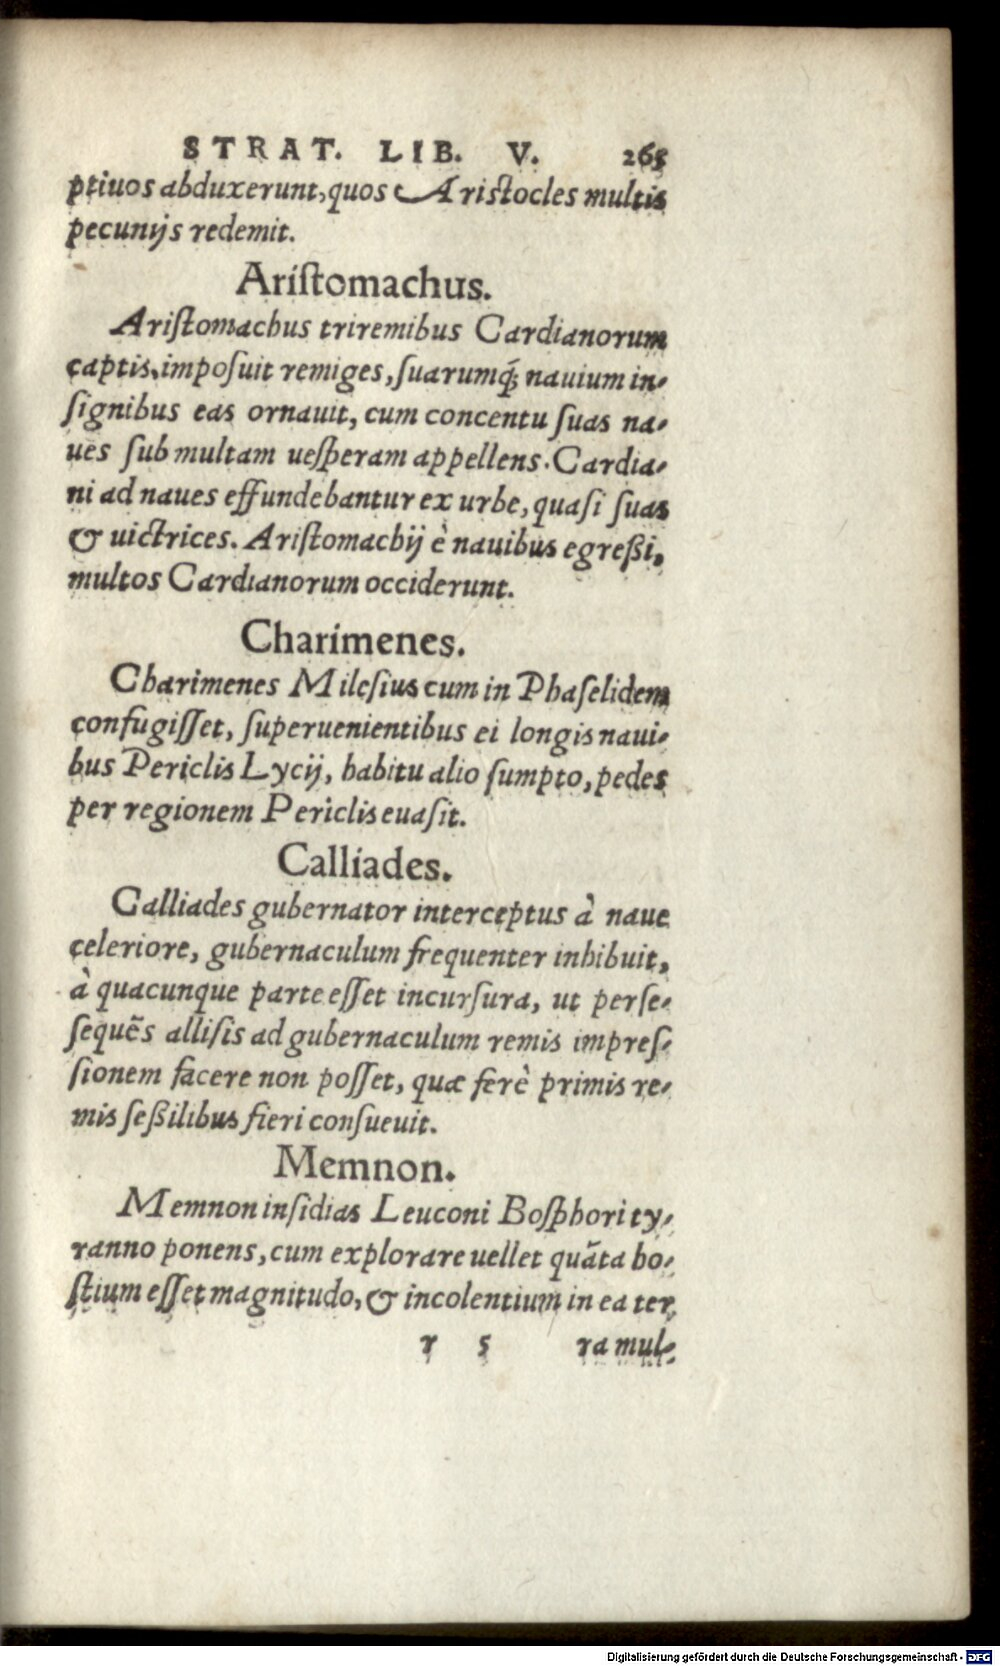 STRAT. LIB. V. 265
ptiuos abduxerunt, quos Aristocles multis
pecunijs redemit.
Ariſtomachus.
Ariſtomachus triremibus Cardianorum
captis, impoſuit remiges, ſuarumq́; nauium in-
ſignibus eas ornauit, cum concentu ſuas na-
ues ſub multam ueſperam appellens. Cardia-
ni ad naues effundebantur ex urbe, quaſi ſuas
& uictrices. Ariſtomachij è nauibus egreßi,
multos Cardianorum occiderunt.
Charimenes.
Charimenes Mileſius cum in Phaſelidem
confugiſſet, ſuperuenientibus ei longis naui-
bus Periclis Lycij, habitu alio ſumpto, pedes
per regionem Periclis euaſit.
Calliades.
Calliades gubernator interceptus à naue
celeriore, gubernaculum frequenter inhibuit,
à quacunque parte eſſet incurſura, ut perſe-
ſequēs alliſis ad gubernaculum remis impreſ-
ſionem facere non poſſet, quæ ferè primis re-
mis ſeßilibus fieri conſueuit.
Memnon.
Memnon inſidias Leuconi Boſphori ty-
ranno ponens, cum explorare uellet quāta ho-
ſtium eſſet magnitudo, & incolentium in ea ter
r 5 ra mul-
Digitalisierung gefördert durch die Deutsche Forschungsgemeinschaft - DFG